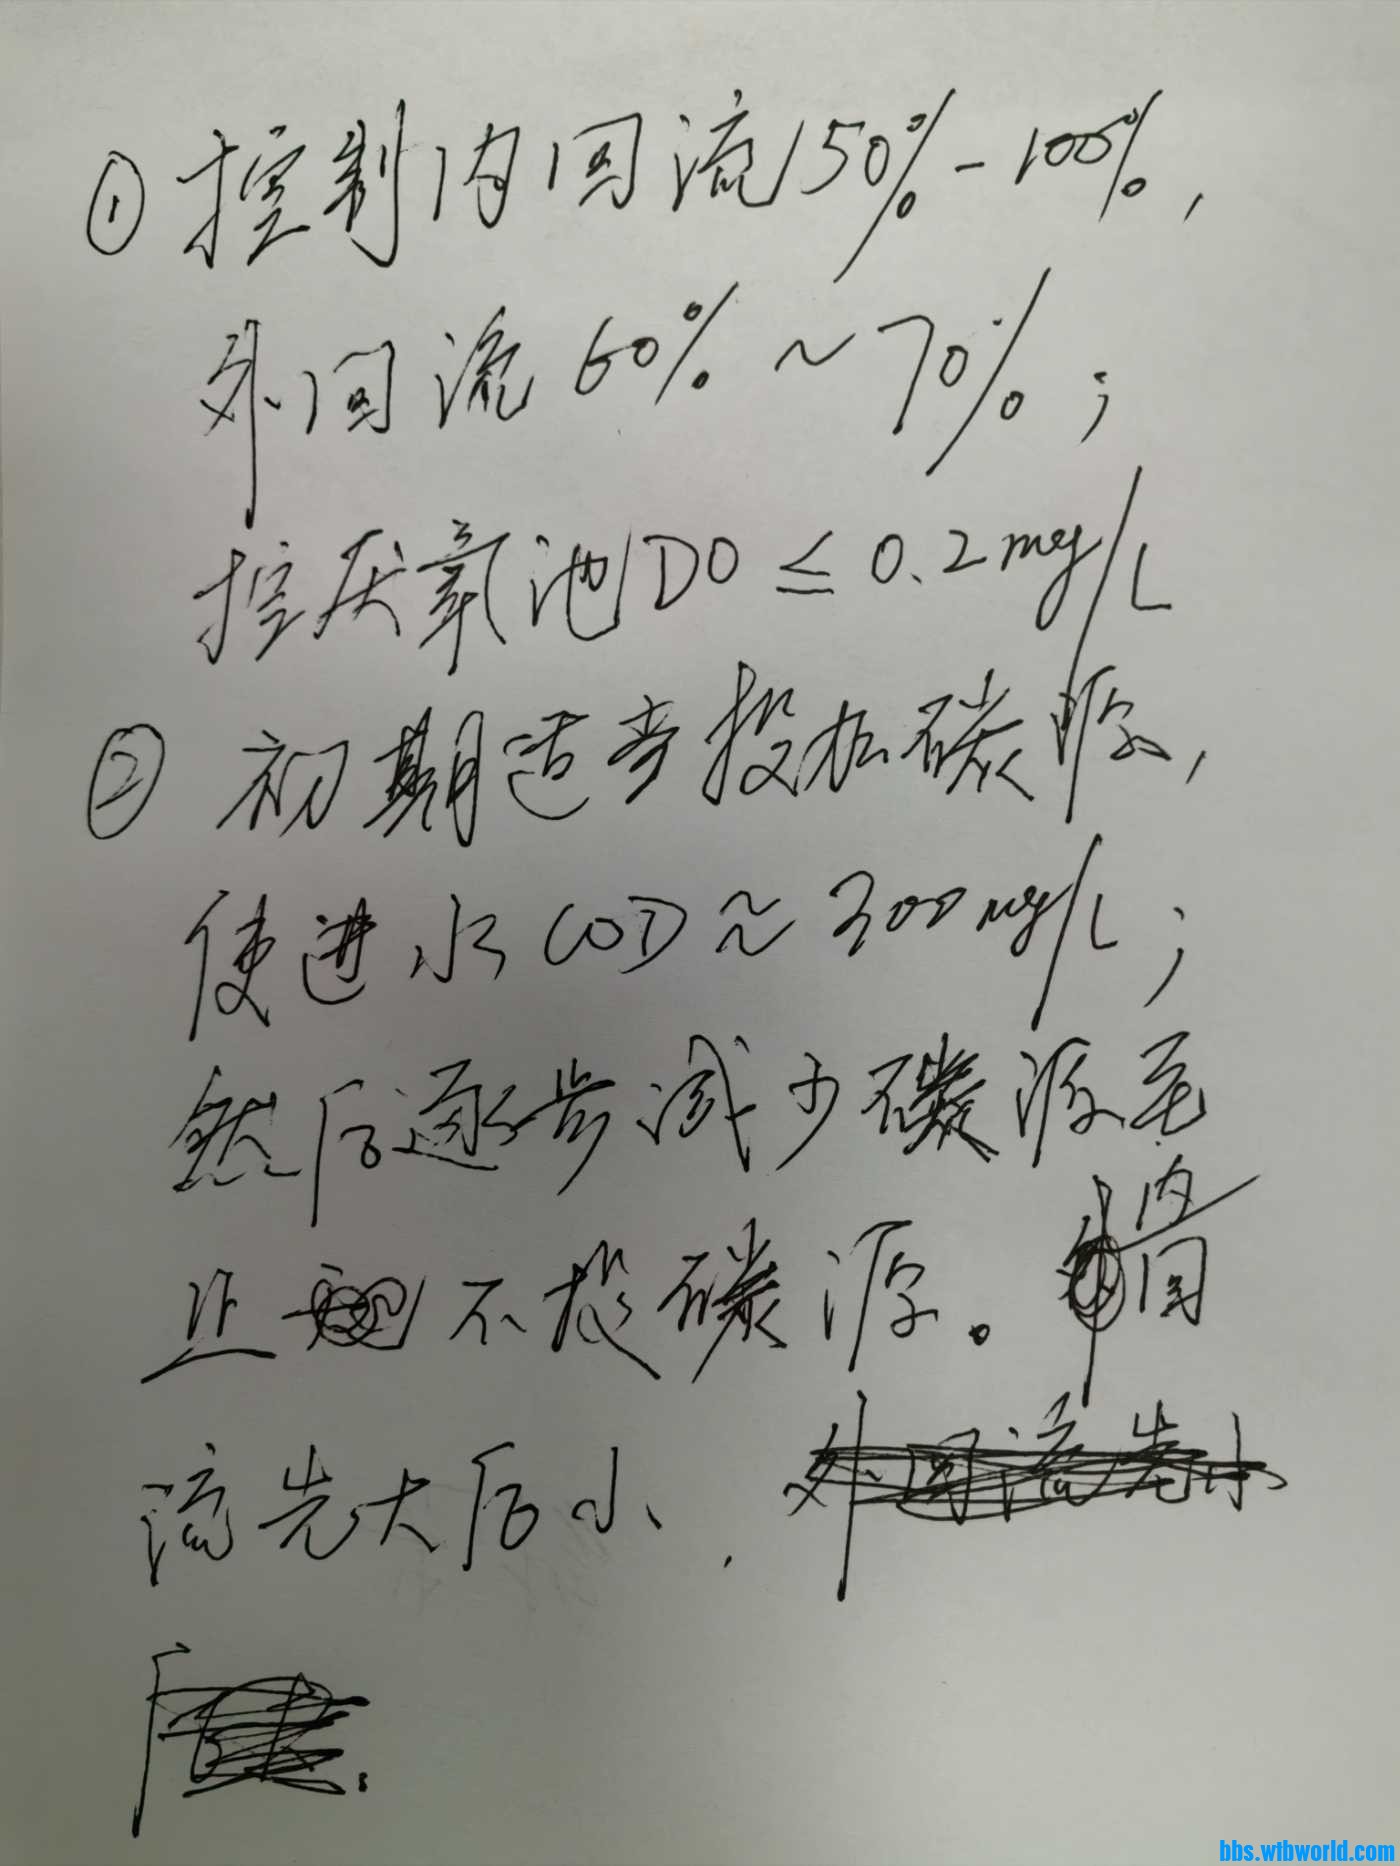 ① 控制内回流150%-100%,
外回流60%~70%;
控厌氧池DO≤0.2mg/L
② 初期适当投加碳源,
使进水COD≈300mg/L;
然后逐步减少碳源至
且不投碳源。内回
流先大后小,外回流先小
后
bbs.wtbworld.com